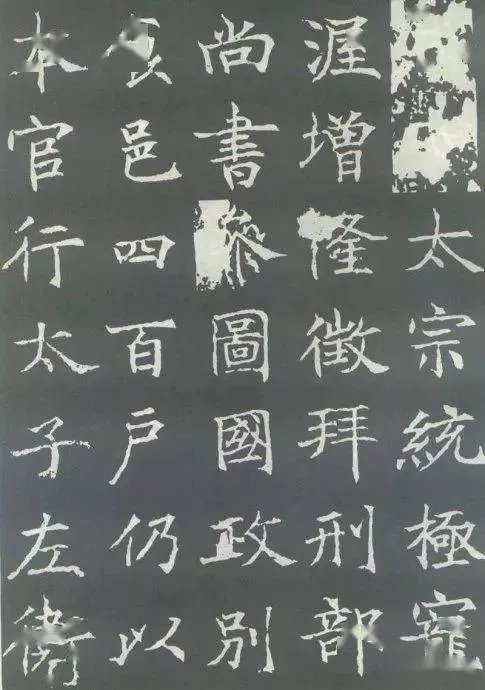 太宗統極寵
渥增隆徵拜刑部
尚書參圖國政別
食邑四百戶仍以
本官行太子左衛